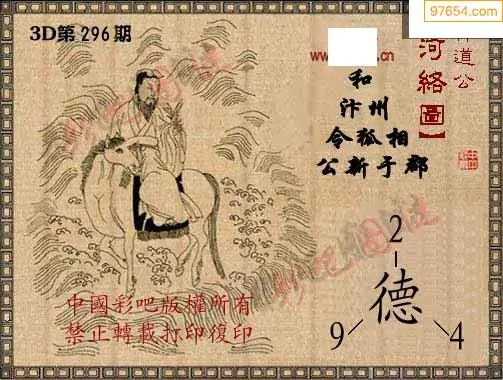 97654.com
3D第296期
www.
道公
河絡圖】
和
汴州
令狐相
公新于郡
彩吧圖庫
2
德
9
4
中國彩吧版權所有
禁止轉載打印復印